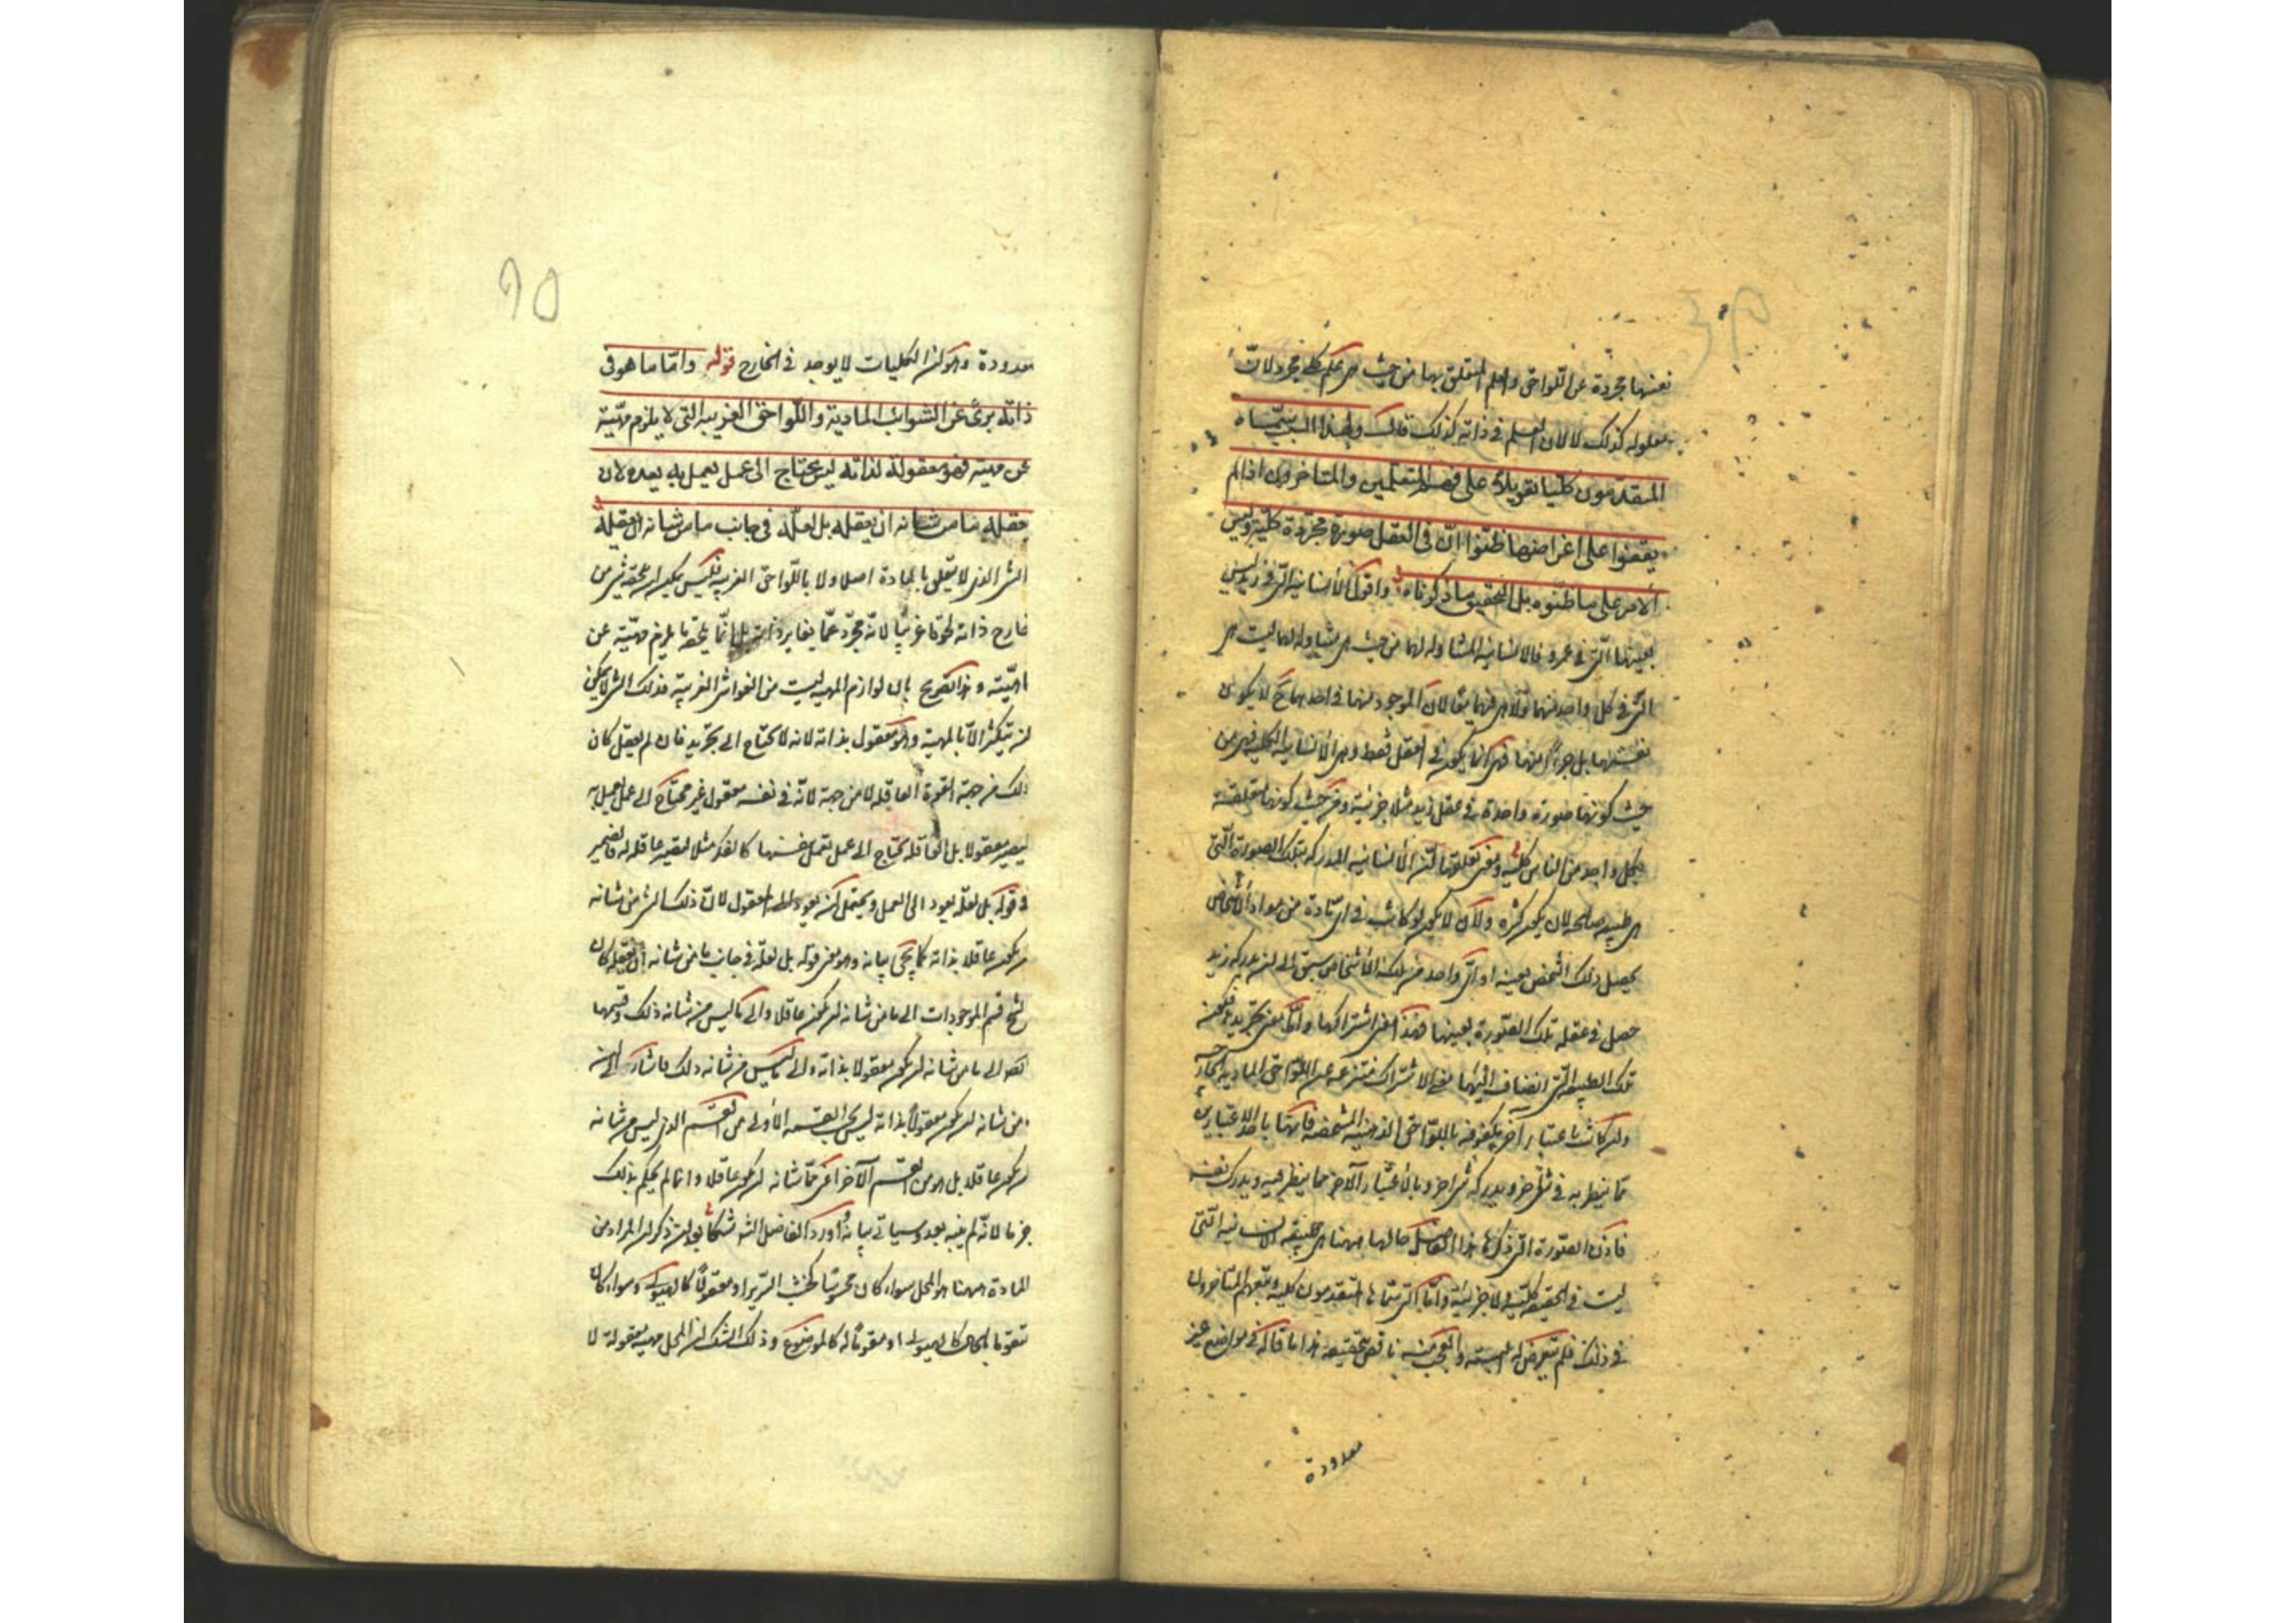 نفسها مجردة عن اللواحق والعلم المتعلق بها من حيث هي علم كلي مجرد لان
معلومه كذلك لا لان العلم في ذاته كذلك قال ولهذا السبب سماه
المتقدمون كليا تعويلا على فهم المتعلمين والمتاخرون اذ لم
يقفوا على اغراضها ظنوا ان في العقل صورة مجردة كلية وليس
الامر على ما ظنوه بل التحقيق ما ذكرناه واقول الانسانية التي في زيد ليس
بعينها التي في عمرو فالانسانية المتناوله لهما من حيث هي متناوله لهما ليست هي
التي في كل واحد منهما ولا هي فيهما معا لان الموجود منها في احدهما ح لا يكون
نفسها بل جزءا منها فهي انما يكون في العقل فقط وهي الانسانية الكلية فهي من
حيث كونها صورة واحدة في عقل زيد مثلا جزئية ومن حيث كونها متعلقة
بكل واحد من الناس كلية ومعنى تعلقها ان الانسانية المدركة بتلك الصورة التي
هي طبيعة صالحة لان يكون كثيرة ولان لا يكون لو كانت في اي مادة من مواد الاشخاص
يحصل ذلك الشخص بعينه او اي واحد من تلك الاشخاص سبق الى ان يدركه زيد
حصل في عقله تلك الصورة بعينها فهذا معنى اشتراكها واما معنى تجريدها فكون
تلك الطبيعة التي انضاف اليها معنى الاشتراك منتزعة عن اللواحق المادية الخارجية
وان كانت باعتبار آخر مكفوفة باللواحق الذهنية المشخصة فانها باحد الاعتبارين
مما ينظر به في شيء آخر ويدرك به شيء آخر وبالاعتبار الآخر مما ينظر فيه ويدرك نفسه
فاذن الصورة التي ذكرها هذا الفاضل حالها ههنا هي طبيعة الانسانية التي
ليست في الحقيقة كلية ولا جزئية واما التي سماها المتقدمون كلية وتبعهم المتاخرون
في ذلك فلم يتعرض له البتة والعجب منه ناقض تحقيقه هذا بما قاله في مواضع غير
معدودة
معدودة وهو ان الكليات لا يوجد في الخارج قوله واما ما هو في
ذاته برئ عن الشوائب المادية واللواحق الغريبة التي لا يلزم مهيته
عن مهيته فهو معقولة لذاته ليس يحتاج الى عمل يعمل به يعده لان
يعقله ما من شانه ان يعقله بل لعله في جانب ما من شانه ان يعقله
الشيء الذي لا يتعلق بالمادة اصلا ولا باللواحق الغريبة فليس يمكن ان يلحقه شيء من
خارج ذاته لحوقا غريبا لانه مجرد عما يغاير ذاته بل انما يلحقه ما يلزم مهيته عن
مهيته وهذا تصريح بان لوازم المهية ليست من الغواشي الغريبة فذلك الشيء لا يمكن
ان يتكثر الا بالمهية وهو معقول بذاته لانه لا يحتاج الى تجريد فان لم يعقل كان
ذلك من جهة القوة العاقلة لا من جهة لانه في نفسه معقول غير محتاج الى عمل يعمل به
ليصير معقولا بل العاقلة يحتاج الى عمل تعمل بنفسها كالفكر مثلا لتصير عاقلة له فالضمير
في قوله بل لعله يعود الى العمل ويحتمل ان يعود الى المعقول لان ذلك الشيء من شانه
ان يكون عاقلا بذاته كما يجئ بيانه وهو معنى قوله بل لعله في جانب ما من شانه ان يعقله كان
الشيخ قسم الموجودات الى ما من شانه ان يكون عاقلا والى ما ليس من شانه ذلك وقسمها
ايضا الى ما من شانه ان يكون معقولا بذاته والى ما ليس من شانه ذلك فاشار الى ان
ما من شانه ان يكون معقولا بذاته ليس بحسب القسمة الاولى من القسم الذي ليس من شانه
ان يكون عاقلا بل هو من القسم الآخر اعني مما شانه ان يكون عاقلا وانما لم يحكم بذلك
جزما لانه لم يبينه بعد وسياتي بيانه اورد الفاضل الشارح شكا بعد ان ذكر ان المراد من
المادة ههنا هو المحل سواء كان محسوسا كخشب السرير او معقولا كالهيولى وسواء كان
متقوما بالحال كالهيولى او مقوما له كالموضوع وذلك الشك ان المحل مهية معقولة لا